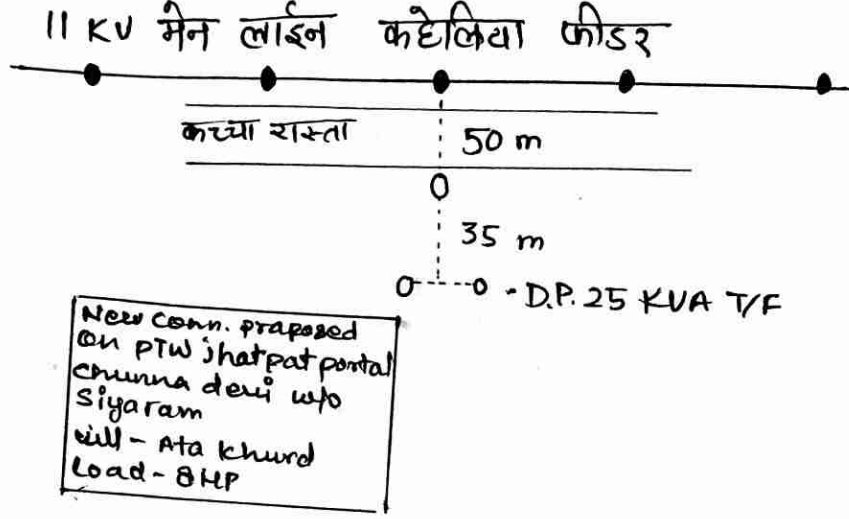 11 KV मेन लाईन कहेलिया फीडर
कच्चा रास्ता
50 m
35 m
D.P. 25 KVA T/F
New conn. praposed
on PTW jhatpat portal
chunna devi w/o
Siyaram
vill - Ata Khurd
Load - 8HP